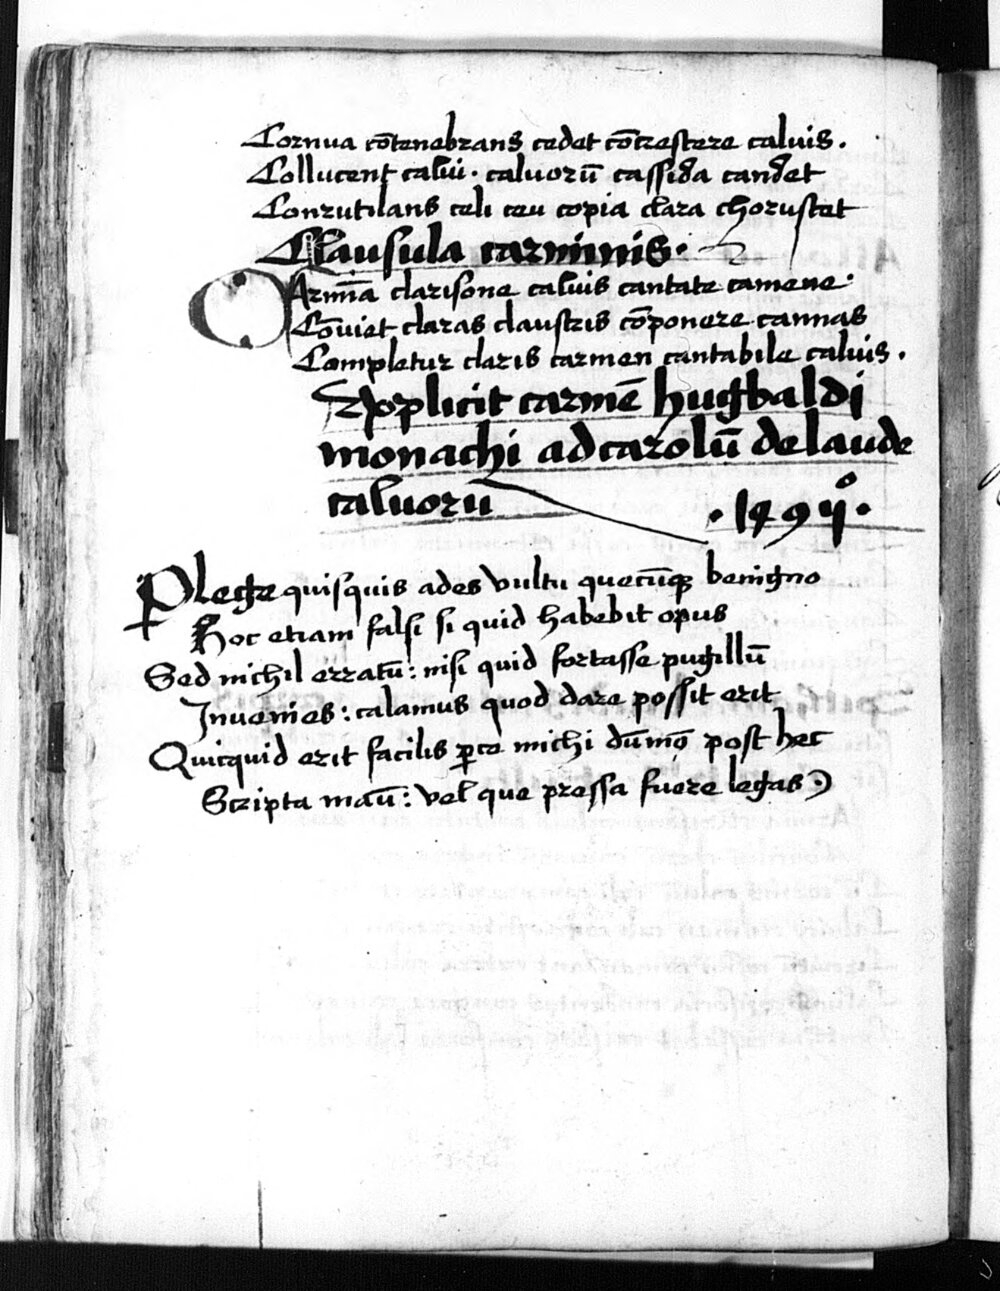 Cornua cōtenebrans cedet cōcrestere caluis.
Collucent calui. caluorū cassida candet
Conrutilans celi ceu copia clara chorustat
Clausula carminis.
CArmīa clarisone caluis cantate camene.
Cōuiet claras claustris cōponere cannas
Completur claris carmen cantabile caluis.
Explicit carmē hugbaldi
monachi ad carolū de laude
caluorū .1492°.
Plege quisquis ades vultu quecūqꝫ benigno
Hoc etiam falsi si quid habebit opus
Sed nichil erratū: nisi quid fortasse pugillū
Inuenies: calamus quod dare possit erit
Quicquid erit facilis ꝑce michi dūmō post hec
Scripta manū: vel que pressa fuere legas